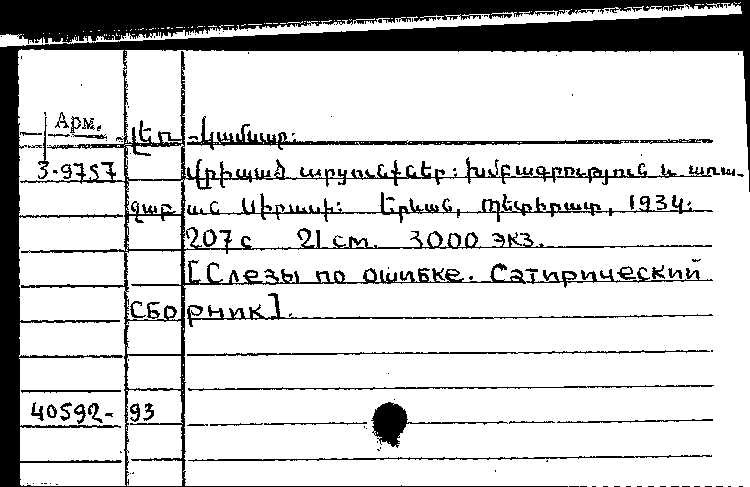 Арм.
Լեռ-Կամսար։
3-9757 Վրիպած արցունքներ։ Խմբագրություն և առա-
ջաբան Սիրասի։ Երևան, Պետհրատ, 1934։
207 с 21 см. 3000 экз.
[Слезы по ошибке. Сатирический
сборник].
40592-93